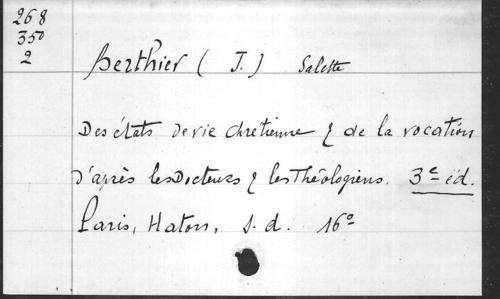 268
350
2
Berthier (J.) Salette
Des états de vie chrétienne & de la vocation
d'après les Docteurs & les Théologiens. 3e éd.
Paris, Haton, s.d. 16°